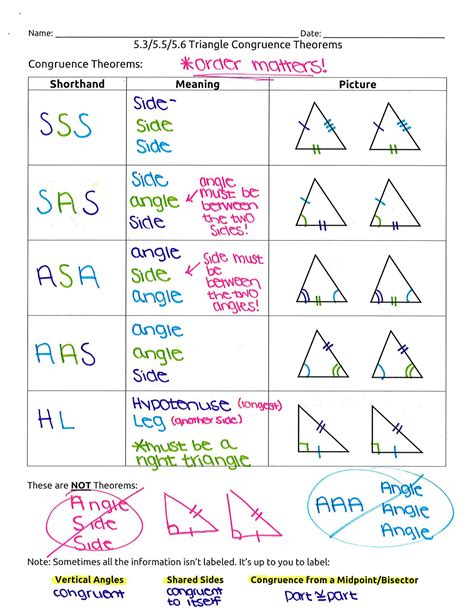 Name: Date:
5.3/5.5/5.6 Triangle Congruence Theorems
Congruence Theorems: *order matters!
Shorthand Meaning Picture
SSS
Side-
Side
Side
SAS
Side
angle
Side
angle
must be
between
the two
sides!
ASA
angle
Side
angle
Side must
be
between
the two
angles!
AAS
angle
angle
Side
HL
Hypotenuse (longest)
Leg (another side)
*must be a
right triangle
These are NOT Theorems:
Angle
Side
Side
AAA
Angle
Angle
Angle
Note: Sometimes all the information isn't labeled. It's up to you to label:
Vertical Angles Shared Sides Congruence from a Midpoint/Bisector
congruent
congruent
to itself
part ≅ part